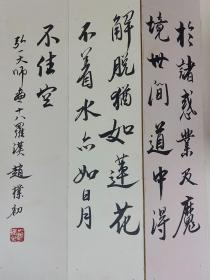 於諸惑業及魔
境世間道中得
解脫猶如蓮花
不着水亦如日月
不住空
弘一大師畫十八羅漢 趙樸初